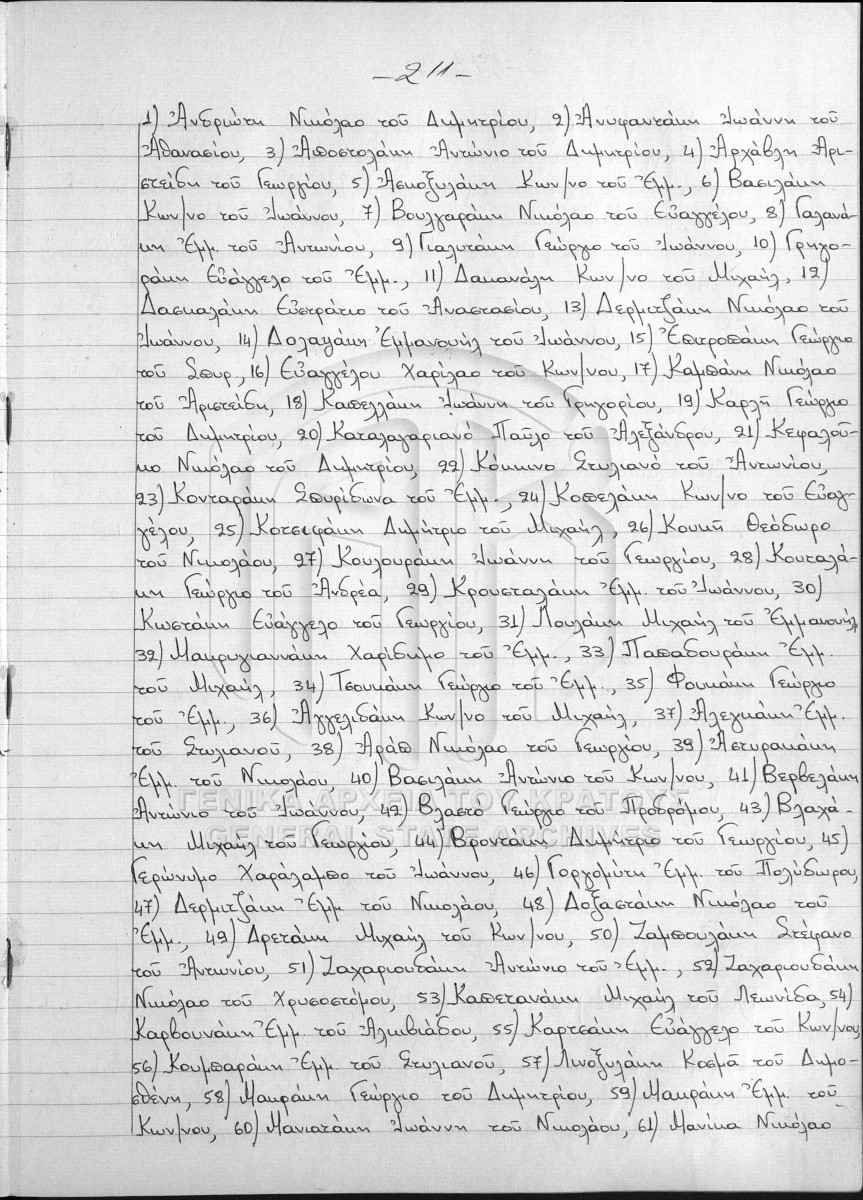 -211-
1) Ἀνδριώτη Νικόλαο τοῦ Δημητρίου, 2) Ἀνυφαντάκη Ἰωάννη τοῦ
Ἀθανασίου, 3) Ἀποστολάκη Ἀντώνιο τοῦ Δημητρίου, 4) Ἀρχάβλη Ἀρι-
στείδη τοῦ Γεωργίου, 5) Ἀσκοξυλάκη Κων/νο τοῦ Ἐμμ., 6) Βασιλάκη
Κων/νο τοῦ Ἰωάννου, 7) Βουλγαράκη Νικόλαο τοῦ Εὐαγγέλου, 8) Γαλανά-
κη Ἐμμ. τοῦ Ἀντωνίου, 9) Γιαλυτάκη Γεώργιο τοῦ Ἰωάννου, 10) Γρηγο-
ράκη Εὐάγγελο τοῦ Ἐμμ., 11) Δακανάλη Κων/νο τοῦ Μιχαήλ, 12)
Δασκαλάκη Εὐστράτιο τοῦ Ἀναστασίου, 13) Δερμιτζάκη Νικόλαο τοῦ
Ἰωάννου, 14) Δολαψάκη Ἐμμανουήλ τοῦ Ἰωάννου, 15) Ἐπιτροπάκη Γεώργιο
τοῦ Σπυρ, 16) Εὐαγγέλου Χαρίλαο τοῦ Κων/νου, 17) Καμπάνη Νικόλαο
τοῦ Ἀριστείδη, 18) Καπελλάκη Ἰωάννη τοῦ Γρηγορίου, 19) Καρλῆ Γεώργιο
τοῦ Δημητρίου, 20) Καταλαγαριανό Παῦλο τοῦ Ἀλεξάνδρου, 21) Κεφαλού-
κο Νικόλαο τοῦ Δημητρίου, 22) Κόκκινο Στυλιανό τοῦ Ἀντωνίου,
23) Κονταράκη Σπυρίδωνα τοῦ Ἐμμ., 24) Κοπελάκη Κων/νο τοῦ Εὐαγ-
γέλου, 25) Κοτσιφάκη Δημήτριο τοῦ Μιχαήλ, 26) Κουκῆ Θεόδωρο
τοῦ Νικολάου, 27) Κουλουράκη Ἰωάννη τοῦ Γεωργίου, 28) Κουταλά-
κη Γεώργιο τοῦ Ἀνδρέα, 29) Κρουσταλάκη Ἐμμ. τοῦ Ἰωάννου, 30)
Κωστάκη Εὐάγγελο τοῦ Γεωργίου, 31) Λουλάκη Μιχαήλ τοῦ Ἐμμανουήλ
32) Μαυρογιαννάκη Χαρίδημο τοῦ Ἐμμ., 33) Παπαδουράκη Ἐμμ.
τοῦ Μιχαήλ, 34) Τσουκάκη Γεώργιο τοῦ Ἐμμ., 35) Φουκάκη Γεώργιο
τοῦ Ἐμμ., 36) Ἀγγελιδάκη Κων/νο τοῦ Μιχαήλ, 37) Ἀλεγκάκη Ἐμμ.
τοῦ Στυλιανοῦ, 38) Ἀράπ Νικόλαο τοῦ Γεωργίου, 39) Ἀστυρακάκη
Ἐμμ. τοῦ Νικολάου, 40) Βασιλάκη Ἀντώνιο τοῦ Κων/νου, 41) Βερβελάκη
Ἀντώνιο τοῦ Ἰωάννου, 42) Βλαστό Γεώργιο τοῦ Προδρόμου, 43) Βλαχά-
κη Μιχαήλ τοῦ Γεωργίου, 44) Βροντάκη Δημήτριο τοῦ Γεωργίου, 45)
Γερώνυμο Χαράλαμπο τοῦ Ἰωάννου, 46) Γοργομύτη Ἐμμ. τοῦ Πολύδωρου,
47) Δερμιτζάκη Ἐμμ τοῦ Νικολάου, 48) Δοξαστάκη Νικόλαο τοῦ
Ἐμμ., 49) Δρετάκη Μιχαήλ τοῦ Κων/νου, 50) Ζαμπουλάκη Στέφανο
τοῦ Ἀντωνίου, 51) Ζαχαριουδάκη Ἀντώνιο τοῦ Ἐμμ., 52) Ζαχαριουδάκη
Νικόλαο τοῦ Χρυσοστόμου, 53) Καπετανάκη Μιχαήλ τοῦ Λεωνίδα, 54)
Καρβουνάκη Ἐμμ. τοῦ Ἀλκιβιάδου, 55) Καρτσάκη Εὐάγγελο τοῦ Κων/νου,
56) Κουμπαράκη Ἐμμ. τοῦ Στυλιανοῦ, 57) Λινοξυλάκη Κοσμᾶ τοῦ Δημο-
σθένη, 58) Μακράκη Γεώργιο τοῦ Δημητρίου, 59) Μακράκη Ἐμμ. τοῦ
Κων/νου, 60) Μανιατάκη Ἰωάννη τοῦ Νικολάου, 61) Μανίκα Νικόλαο
ΓΕΝΙΚΑ ΑΡΧΕΙΑ ΤΟΥ ΚΡΑΤΟΥΣ
GENERAL STATE ARCHIVES